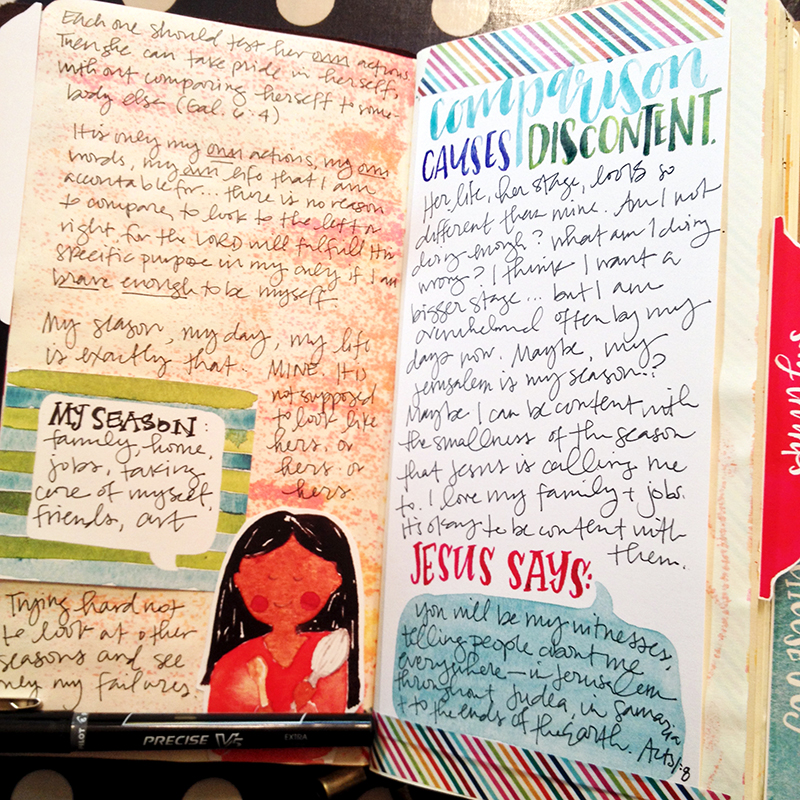 Each one should test her own actions
Then she can take pride in herself,
without comparing herself to some-
body else (Gal. 6:4)
It is only my own actions, my own
words, my own life that I am
accountable for... there is no reason
to compare, to look to the left or
right for the LORD will fulfull His
specific purpose in my only if I am
brave enough to be myself
My season, my day, my life
is exactly that.
MINE. It is
not supposed
to look like
hers, or
hers or
hers.
MY SEASON:
family, home,
jobs, taking
care of myself,
friends, art
Trying hard not
to look at other
seasons and see
only my failures.
PILOT
PRECISE V5
EXTRA
comparison
CAUSES DISCONTENT.
Her life, her stage, looks so
different than mine. Am I not
doing enough? what am I doing
wrong? I think I want a
bigger stage... but I am
overwhelmed often by my
days now. Maybe, my
Jerusalem is my season?
Maybe I can be content with
the smallness of the season
that Jesus is calling me
to. I love my family + jobs.
It's okay to be content with
them.
JESUS SAYS:
you will be my witnesses,
telling people about me
everywhere—in Jerusalem
throughout Judea, in Samaria
+ to the ends of the earth. Acts 1:8